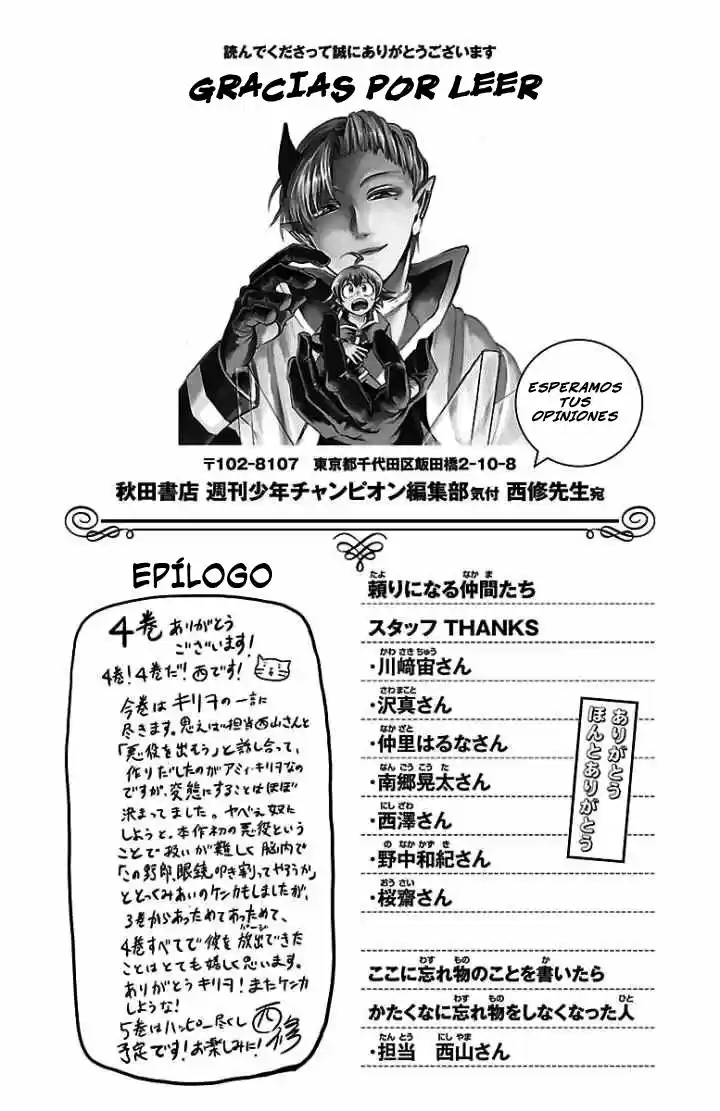 読んでくださって誠にありがとうございます
GRACIAS POR LEER
ESPERAMOS
TUS
OPINIONES
〒102-8107 東京都千代田区飯田橋2-10-8
秋田書店 週刊少年チャンピオン編集部気付 西修先生宛
EPÍLOGO
4巻 ありがとう
ございます!
4巻!4巻だ!西です!
今巻はキリヲの一言に
尽きます。思えば担当西山さんと
「悪役を出もう」と話し合って、
作りだしたのがアミィ・キリヲなの
ですが、変態にすることはほぼ
決まってました。ヤベぇ奴に
しようと。本作初の悪役という
ことで扱いが難しく脳内で
「この野郎、眼鏡叩き割ってやろうか」
ととっくみあいのケンカもしましたが、
3巻からあっためてあっためて、
4巻すべてで彼を放出できた
パージ
ことはとても嬉しく思います。
ありがとうキリヲ!またケンカ
しような!
5巻はハッピー尽くし
予定です!お楽しみに! 西修
たよ なかま
頼りになる仲間たち
スタッフ THANKS
かわさきちゅう
・川﨑宙さん
さわまこと
・沢真さん
なかざと
・仲里はるなさん
なんごうこうた
・南郷晃太さん
にしざわ
・西澤さん
のなかかずき
・野中和紀さん
おうさい
・桜齋さん
ありがとう
ほんとありがとう
わす もの か
ここに忘れ物のことを書いたら
わす もの ひと
かたくなに忘れ物をしなくなった人
たんとう にしやま
・担当 西山さん